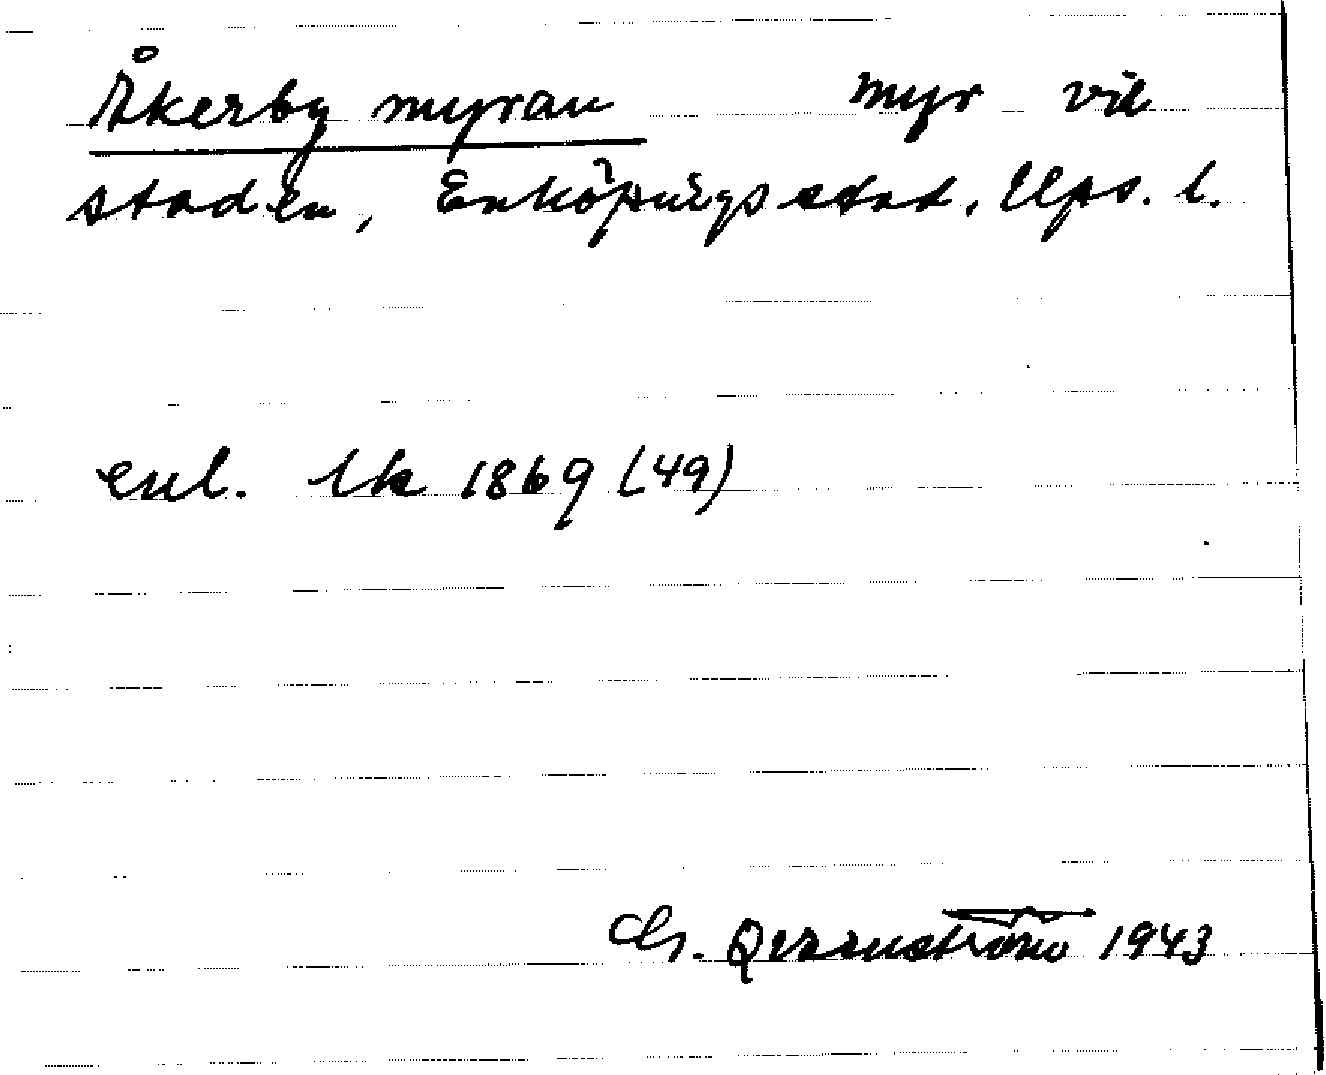 Åkerby myran myr vid
staden, Enköpings stad, Ups. l.
enl. lk 1869 (49)
Ch. Qvarnström 1943